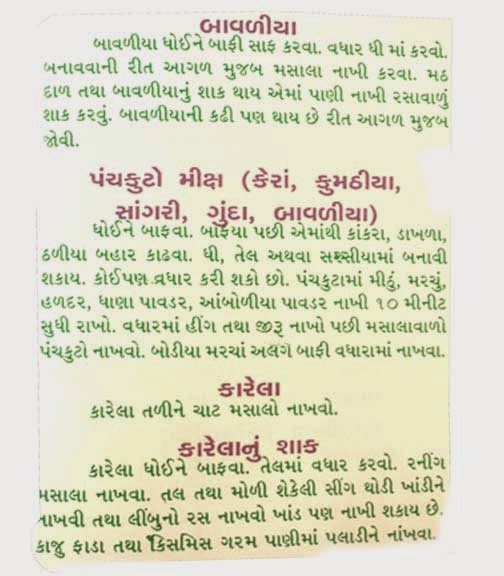 બાવળીયા
બાવળીયા ધોઈને બાફી સાફ કરવા. વધાર ઘી માં કરવો.
બનાવવાની રીત આગળ મુજબ મસાલા નાખી કરવા. મઠ
દાળ તથા બાવળીયાનું શાક થાય એમાં પાણી નાખી રસાવાળું
શાક કરવું. બાવળીયાની કઢી પણ થાય છે રીત આગળ મુજબ
જોવી.
પંચકુટો મીક્ષ (કેરાં, કુમઠીયા,
સાંગરી, ગુંદા, બાવળીયા)
ધોઈને બાફવા. બાફયા પછી એમાંથી કાંકરા, ડાખળા,
ઠળીયા બહાર કાઢવા. ઘી, તેલ અથવા સરસીયામાં બનાવી
શકાય. કોઈપણ વધાર કરી શકો છો. પંચકુટામાં મીઠું, મરચું,
હળદર, ધાણા પાવડર, આંબોળીયા પાવડર નાખી ૧૦ મીનીટ
સુધી રાખો. વધારમાં હીંગ તથા જીરૂ નાખો પછી મસાલાવાળો
પંચકુટો નાખવો. બોડીયા મરચાં અલગ બાફી વધારામાં નાખવા.
કારેલા
કારેલા તળીને ચાટ મસાલો નાખવો.
કારેલાનું શાક
કારેલા ધોઈને બાફવા. તેલમાં વધાર કરવો. રનીંગ
મસાલા નાખવા. તલ તથા મોળી શેકેલી સીંગ થોડી ખાંડીને
નાખવી તથા લીંબુનો રસ નાખવો ખાંડ પણ નાખી શકાય છે.
કાજુ ફાડા તથા કિસમિસ ગરમ પાણીમાં પલાડીને નાંખવા.